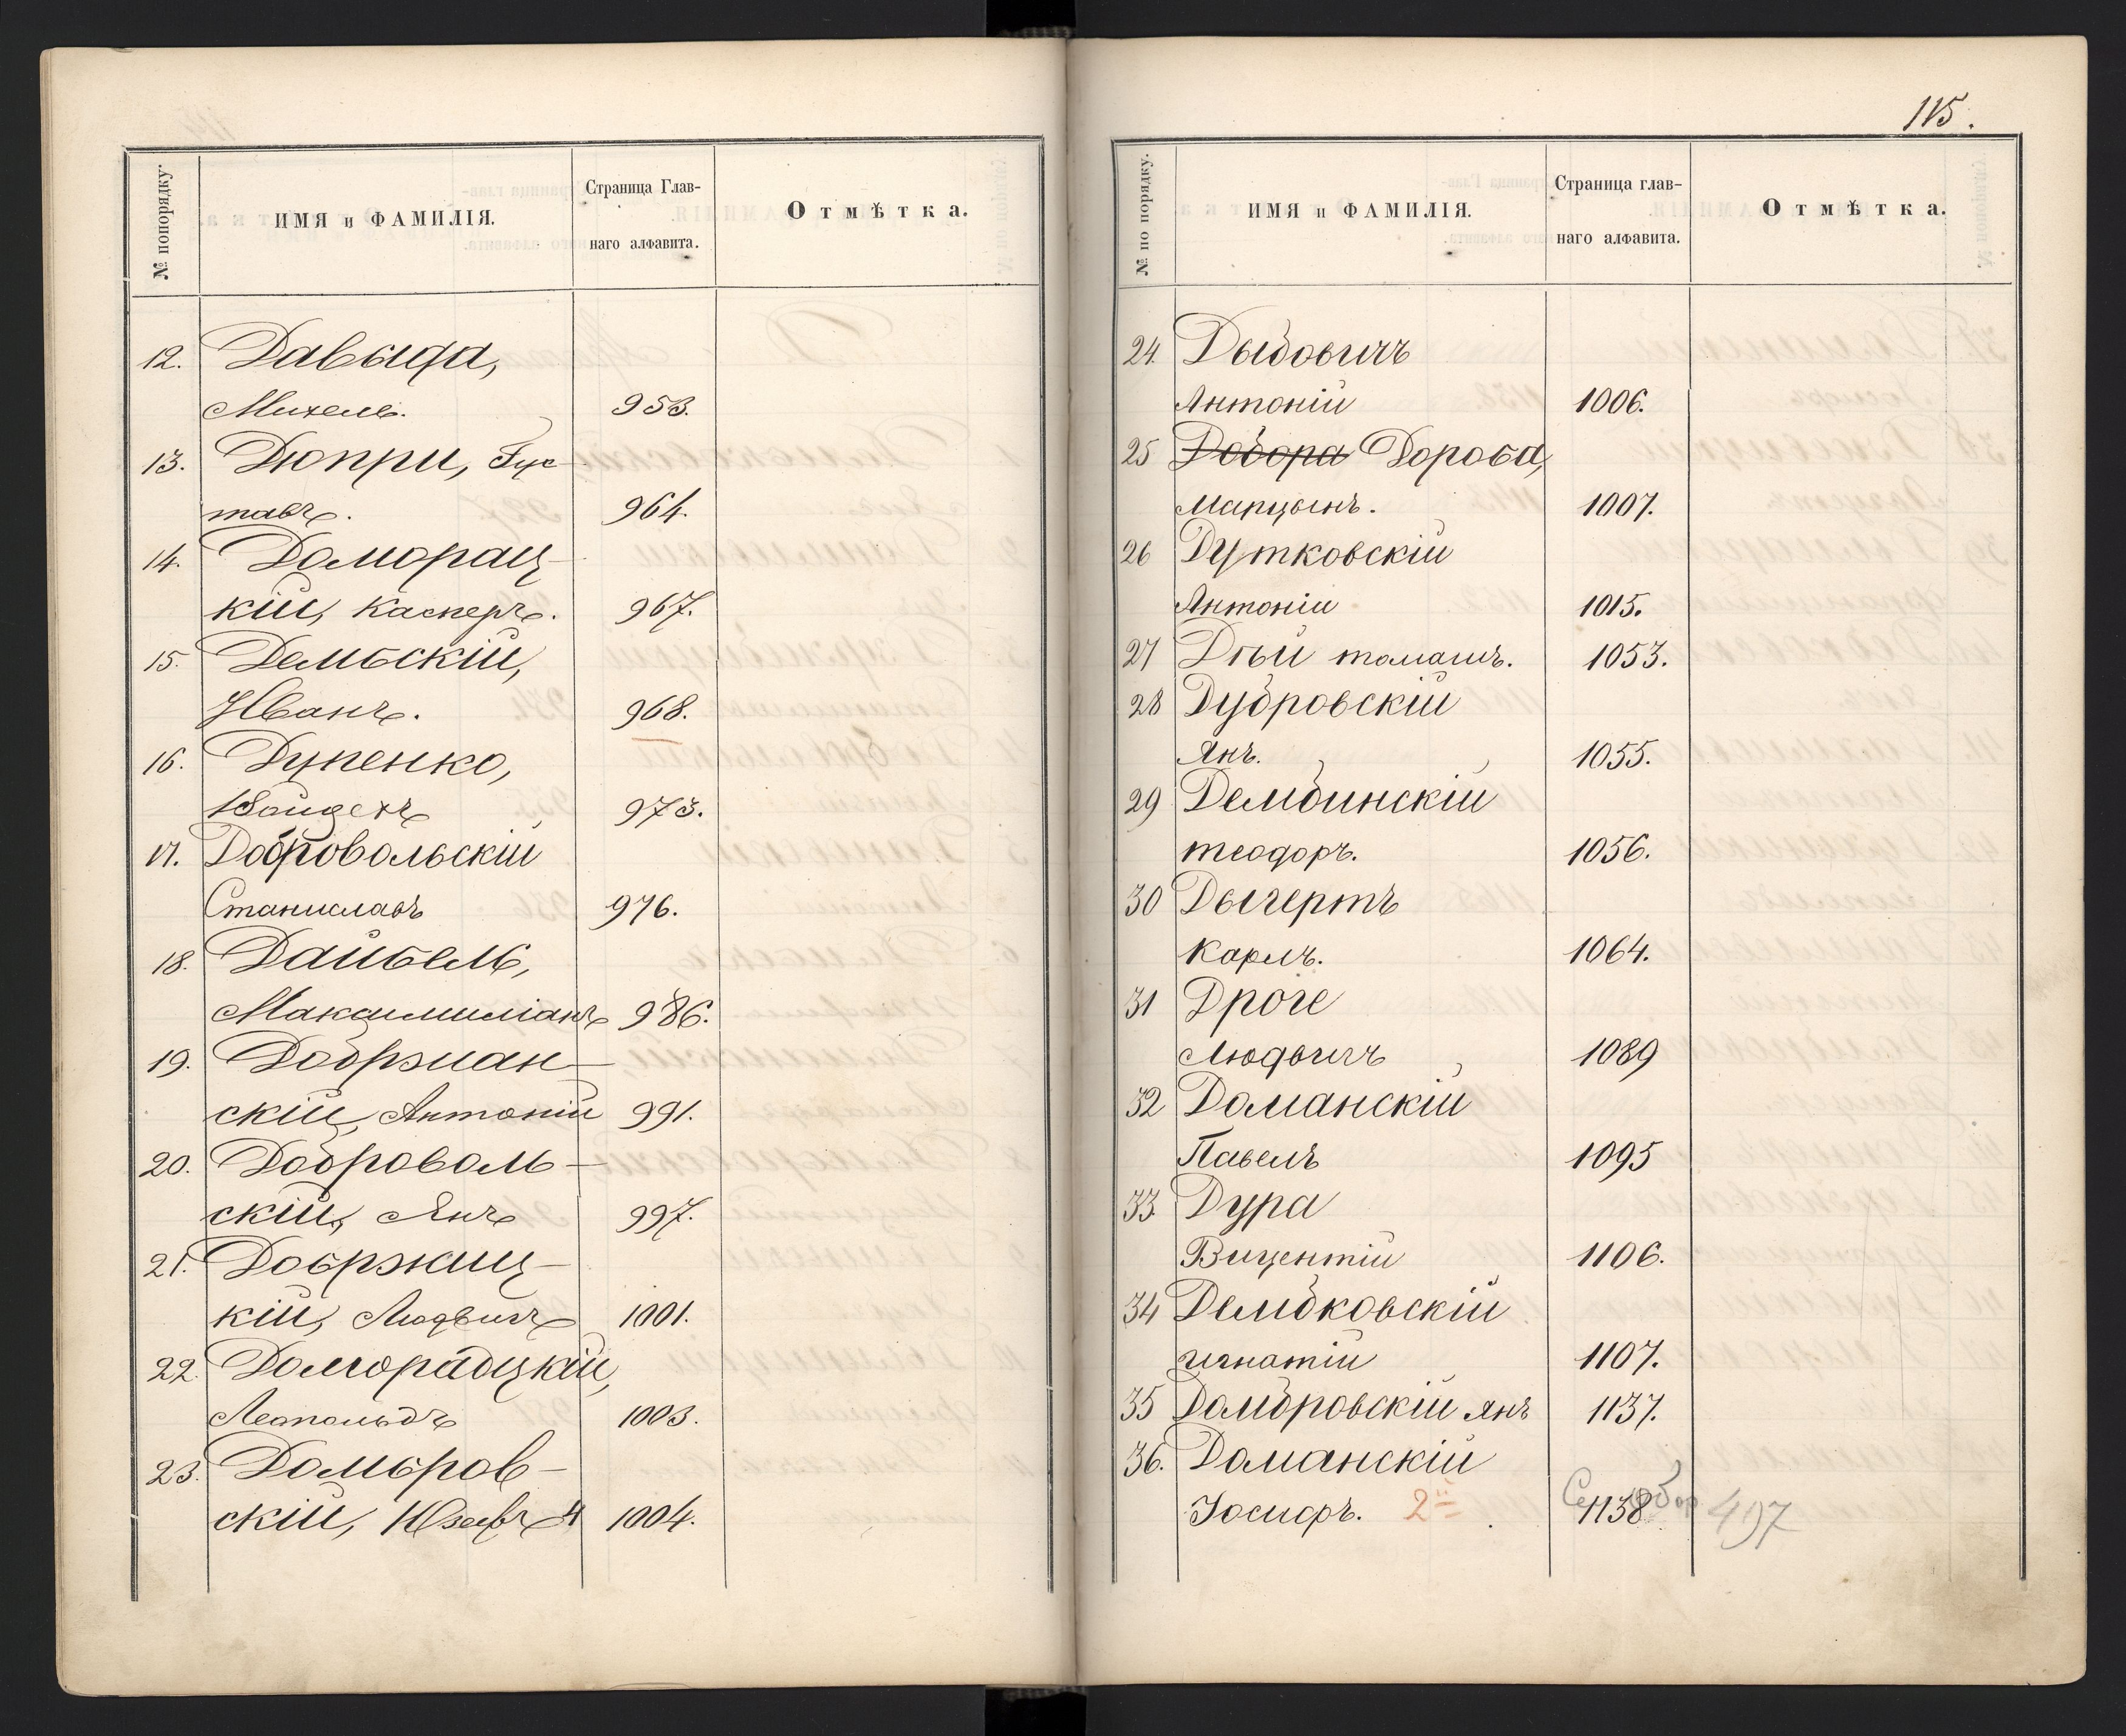 № попорядку.
ИМЯ и ФАМИЛІЯ.
Страница Глав-
наго алфавита.
Отмѣтка.
12. Давыда,
Михель. 953.
13. Дюпри, Гус
тавъ. 964.
14. Доморац-
кій, Касперъ. 967.
15. Дембскій,
Иванъ. 968.
16. Дупенко,
Войцехъ 973.
17. Добровольскій
Станиславъ 976.
18. Дайбель,
Максимиліанъ 986.
19. Добржан-
скій, Антоній 991.
20. Доброволь-
скій, Янъ 997.
21. Добржиц-
кій, Людвигъ 1001.
22. Доморадзкій,
Леопольдъ 1003.
23. Домбров-
скій, Юзефъ 1004.
115.
№ по порядку.
ИМЯ и ФАМИЛІЯ.
Страница глав-
наго алфавита.
Отмѣтка.
24 Дыбовичъ
Антоній 1006.
25 Добора Дороба,
Марцынъ. 1007.
26 Дутковскій
Антоній 1015.
27 Дѣй томашъ. 1053.
28 Дубровскій
Янъ. 1055.
29 Дембинскій
теодоръ. 1056.
30 Дыгертъ
Карлъ. 1064.
31 Дроге
Людвигъ 1089
32 Доманскій
Павелъ 1095
33 Дура
Вицентій 1106.
34 Дембковскій
игнатій 1107.
35 Домбровскій янъ 1137.
36. Доманскій
Іосифъ. 2й 1138 497